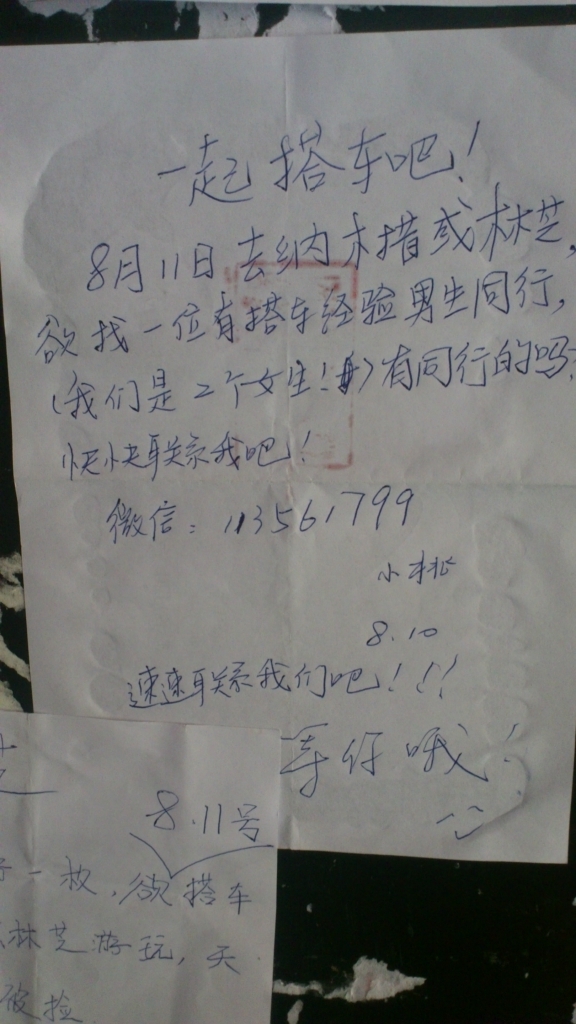 一起搭车吧!
8月11日去纳木措或林芝,
欲找一位有搭车经验男生同行,
(我们是2个女生!) 有同行的吗?
快快联系我吧!
微信: 113561799
小桃
8.10
速速联系我们吧!!!
等你哦!
8.11号
一枚,欲搭车
林芝游玩,天
被捡